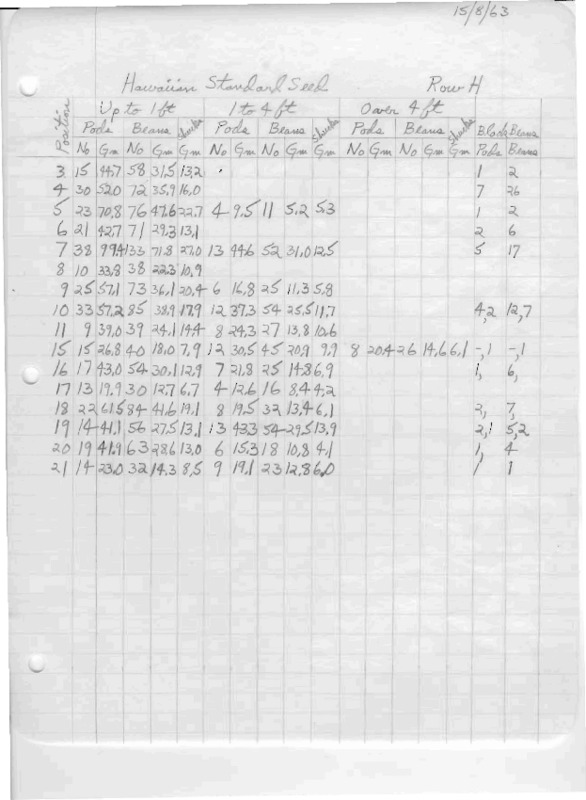 15/8/63
Hawaiian Standard Seed Row H
Position Up to 1 ft 1 to 4 ft Over 4 ft
Pods Beans Shucks Pods Beans Shucks Pods Beans Shucks Black Beans
No Gm No Gm Gm No Gm No Gm Gm No Gm No Gm Gm Pods Beans
3 15 44,7 58 31,5 13,2 1 2
4 30 52,0 72 35,9 16,0 7 26
5 23 70,8 76 47,6 22,7 4 9,5 11 5,2 5,3 1 2
6 21 42,7 71 29,3 13,1 2 6
7 38 99,4 133 71,8 27,0 13 44,6 52 31,0 12,5 5 17
8 10 33,8 38 22,3 10,9
9 25 57,1 73 36,1 20,4 6 16,8 25 11,3 5,8
10 33 57,2 85 38,9 17,9 12 37,3 54 25,5 11,7 4,2 12,7
11 9 39,0 39 24,1 14,4 8 24,3 27 13,8 10,6
15 15 26,8 40 18,0 7,9 12 30,5 45 20,9 9,9 8 20,4 26 14,6 6,1 -,1 -,1
16 17 43,0 54 30,1 12,9 7 21,8 25 14,8 6,9 1, 6,
17 13 19,9 30 12,7 6,7 4 12,6 16 8,4 4,2
18 22 61,5 84 41,6 19,1 8 19,5 32 13,4 6,1 2, 7,
19 14 41,1 56 27,5 13,1 13 43,3 54 29,5 13,9 2,1 5,2
20 19 41,9 63 28,6 13,0 6 15,3 18 10,8 4,1 1, 4
21 14 23,0 32 14,3 8,5 9 19,1 23 12,8 6,0 1 1